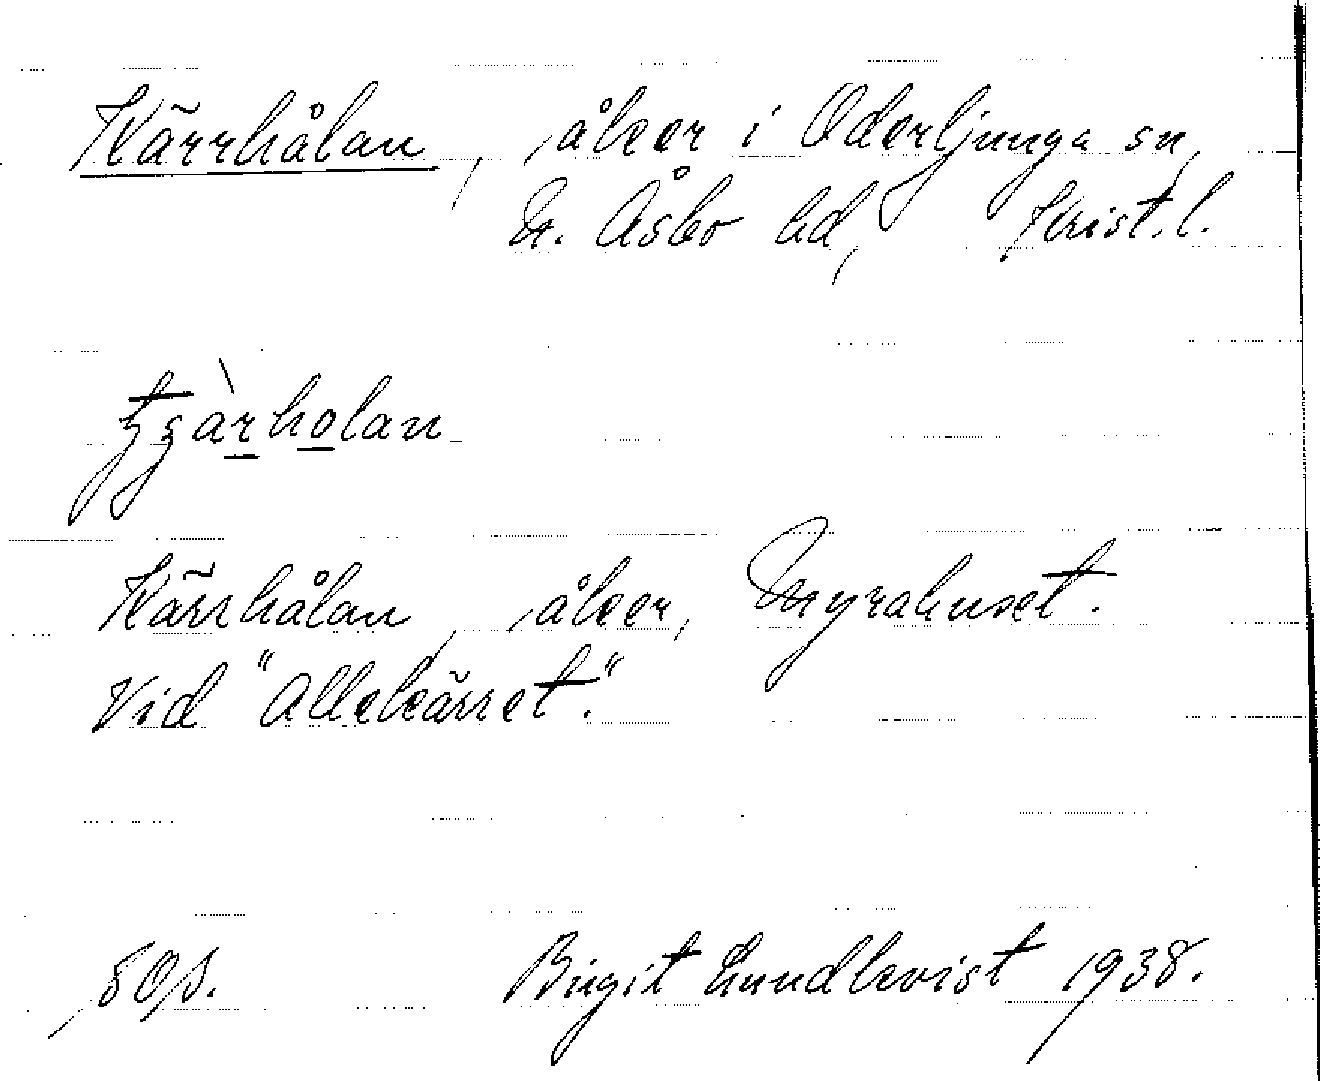 Kärrhålan, åker i Oderljunga sn,
N. Åsbo hd, Krist. l.
Kärrhålan, åker, Myrahuset.
Vid "Allekärret".
Birgit Lundkvist 1938.